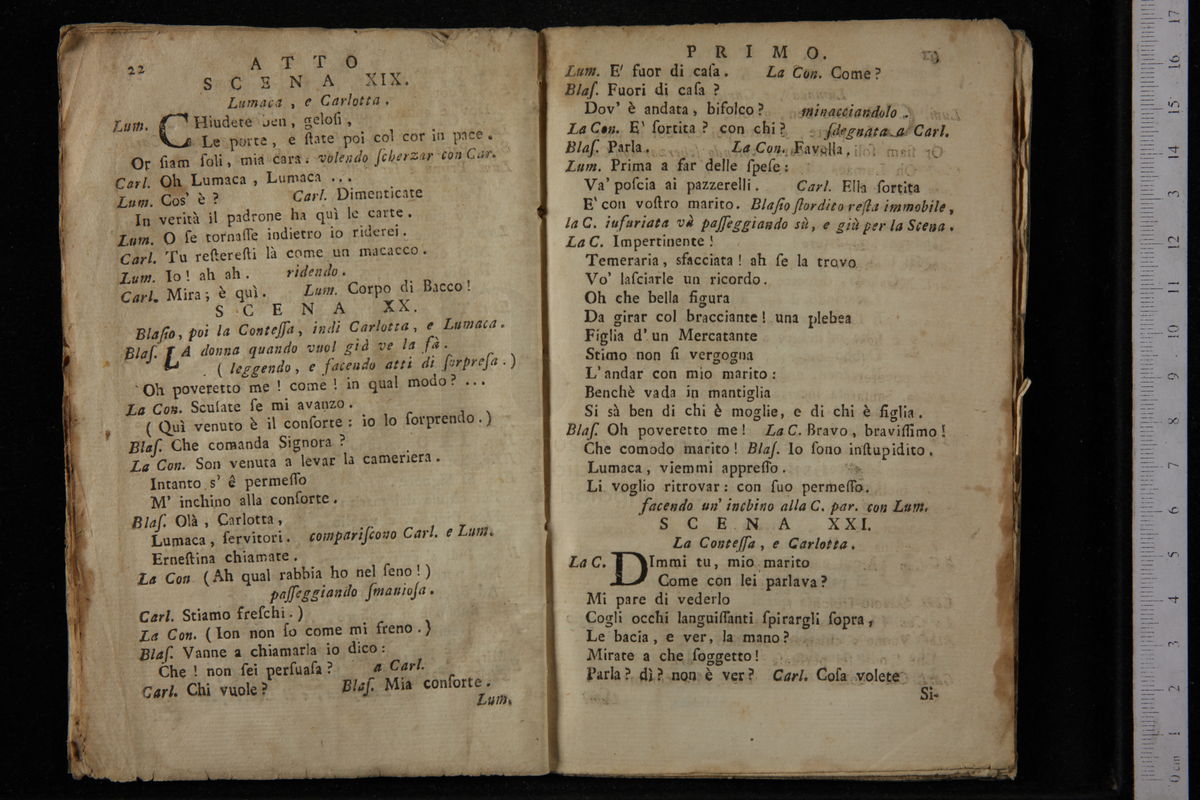 22
ATTO
SCENA XIX.
Lumaca, e Carlotta.
Lum. CHiudete ben, gelosi,
Le porte, e ſtate poi col cor in pace.
Or ſiam ſoli, mia cara. volendo ſcherzar con Car.
Carl. Oh Lumaca, Lumaca ...
Lum. Cos' è? Carl. Dimenticate
In verità il padrone ha quì le carte.
Lum. O ſe tornaſſe indietro io riderei.
Carl. Tu reſtereſti là come un macacco.
Lum. Io! ah ah. ridendo.
Carl. Mira; è quì. Lum. Corpo di Bacco!
SCENA XX.
Blaſio, poi la Conteſſa, indi Carlotta, e Lumaca.
Blaſ. LA donna quando vuol già ve la fà.
(leggendo, e facendo atti di ſorpreſa.)
Oh poveretto me! come! in qual modo? ...
La Con. Scuſate ſe mi avanzo.
(Quì venuto è il conſorte: io lo ſorprendo.)
Blaſ. Che comanda Signora?
La Con. Son venuta a levar la cameriera.
Intanto s' è permeſſo
M' inchino alla conſorte.
Blaſ. Olà, Carlotta,
Lumaca, ſervitori. compariſcono Carl. e Lum.
Erneſtina chiamate.
La Con (Ah qual rabbia ho nel ſeno!)
paſſeggiando ſmanioſa.
Carl. Stiamo freſchi.)
La Con. (Ion non ſo come mi freno.)
Blaſ. Vanne a chiamarla io dico:
Che! non ſei perſuaſa? a Carl.
Carl. Chi vuole? Blaſ. Mia conſorte.
Lum.
PRIMO.
Lum. E' fuor di caſa. La Con. Come?
Blaſ. Fuori di caſa?
Dov' è andata, bifolco? minacciandolo.
La Con. E' ſortita? con chi? ſdegnata a Carl.
Blaſ. Parla. La Con. Favella.
Lum. Prima a far delle ſpeſe:
Va' poſcia ai pazzerelli. Carl. Ella ſortita
E' con voſtro marito. Blaſio ſtordito reſta immobile,
la C. iufuriata và paſſeggiando sù, e giù per la Scena.
La C. Impertinente!
Temeraria, sfacciata! ah ſe la trovo
Vo' laſciarle un ricordo.
Oh che bella figura
Da girar col bracciante! una plebea
Figlia d' un Mercatante
Stimo non ſi vergogna
L' andar con mio marito:
Benchè vada in mantiglia
Si sà ben di chi è moglie, e di chi è figlia.
Blaſ. Oh poveretto me! La C. Bravo, braviſſimo!
Che comodo marito! Blaſ. Io ſono inſtupidito.
Lumaca, viemmi appreſſo.
Li voglio ritrovar: con ſuo permeſſo.
facendo un' inchino alla C. par. con Lum.
SCENA XXI.
La Conteſſa, e Carlotta.
La C. DImmi tu, mio marito
Come con lei parlava?
Mi pare di vederlo
Cogli occhi languiſſanti ſpirargli ſopra,
Le bacia, e ver, la mano?
Mirate a che ſoggetto!
Parla? dì? non è ver? Carl. Coſa volete
Si-